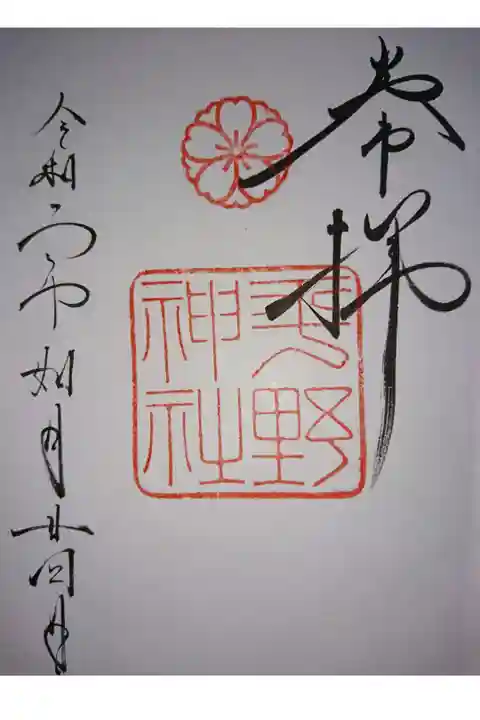 奉拝
平野
神社
令和 年如月廿四日